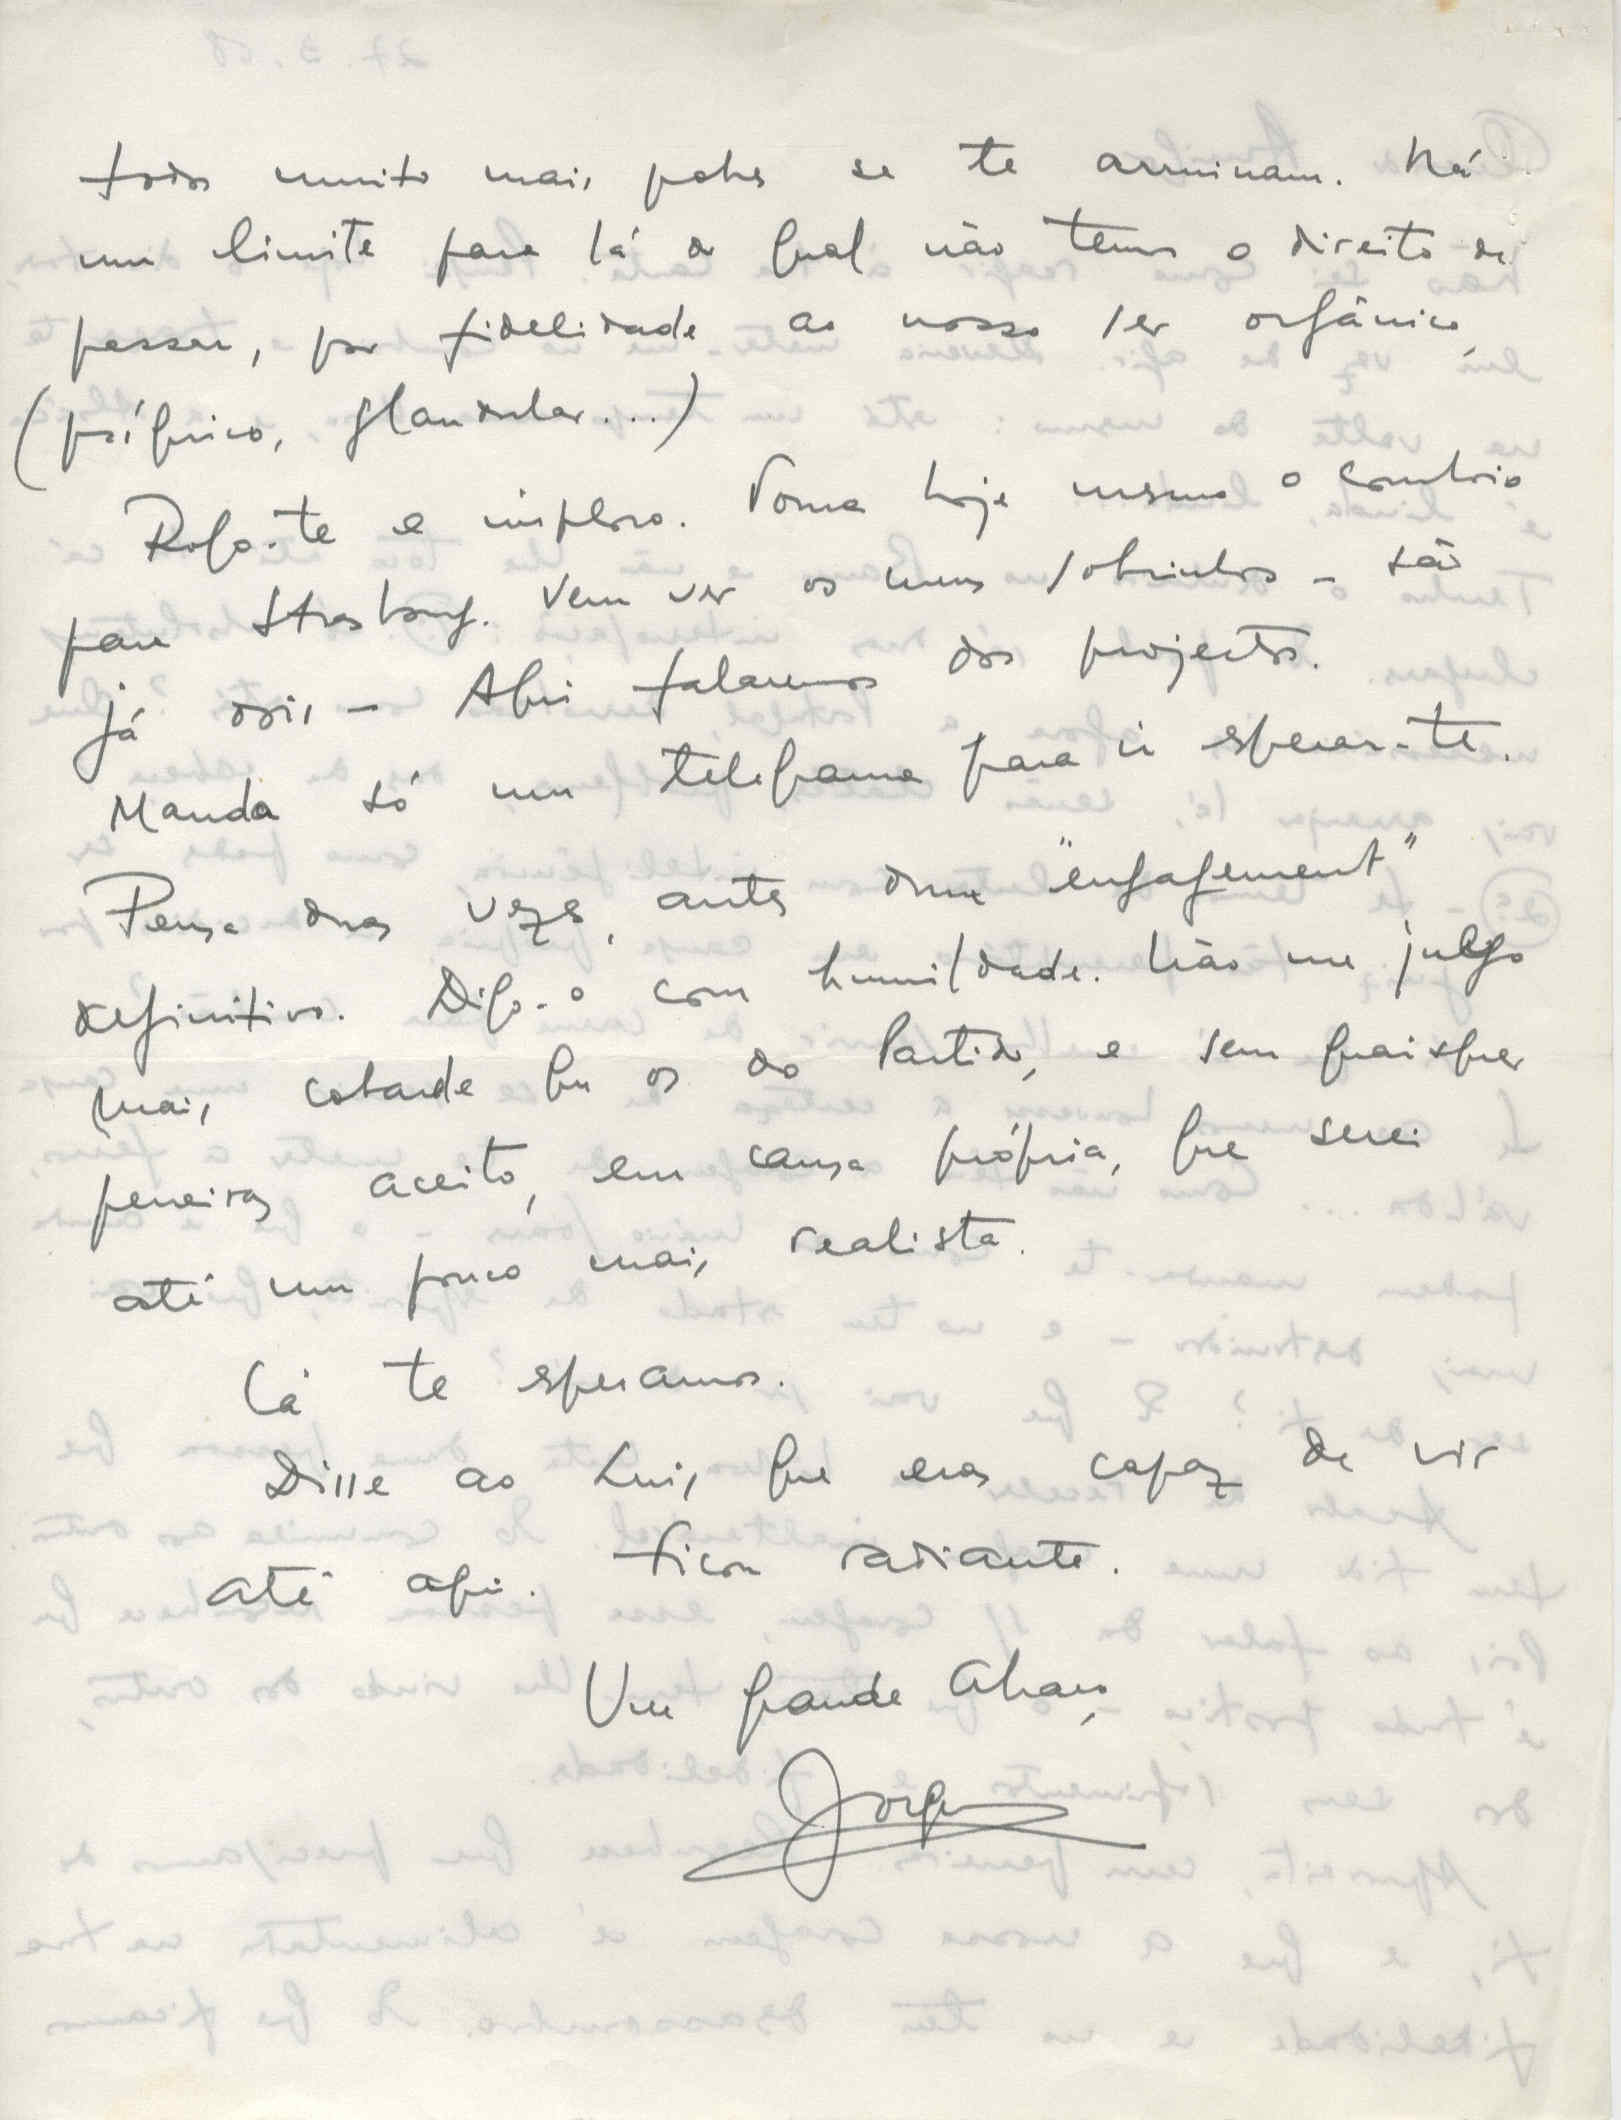 todos muito mais pobres se te arruinam. Há
um limite para lá do qual não temos o direito de
passar, por fidelidade ao nosso ser orgânico,
(psíquico, glandular...)
Rogo-te e imploro. Toma hoje mesmo o comboio
para Strasbourg. Vem ver os meus sobrinhos - são
já dois - Aqui falaremos dos projectos.
Manda só um telegrama para ir esperar-te.
Pensa duas vezes, antes dum "engagement"
definitivo. Digo-o com humildade. Não me julgo
mais cobarde que os do Partido, e sem quaisquer
peneiras aceito, em causa própria, que serei
até um pouco mais realista.
Cá te esperamos.
Disse ao Luis que eras capaz de vir
até aqui. Ficou radiante.
Um grande abraço,
Jorge